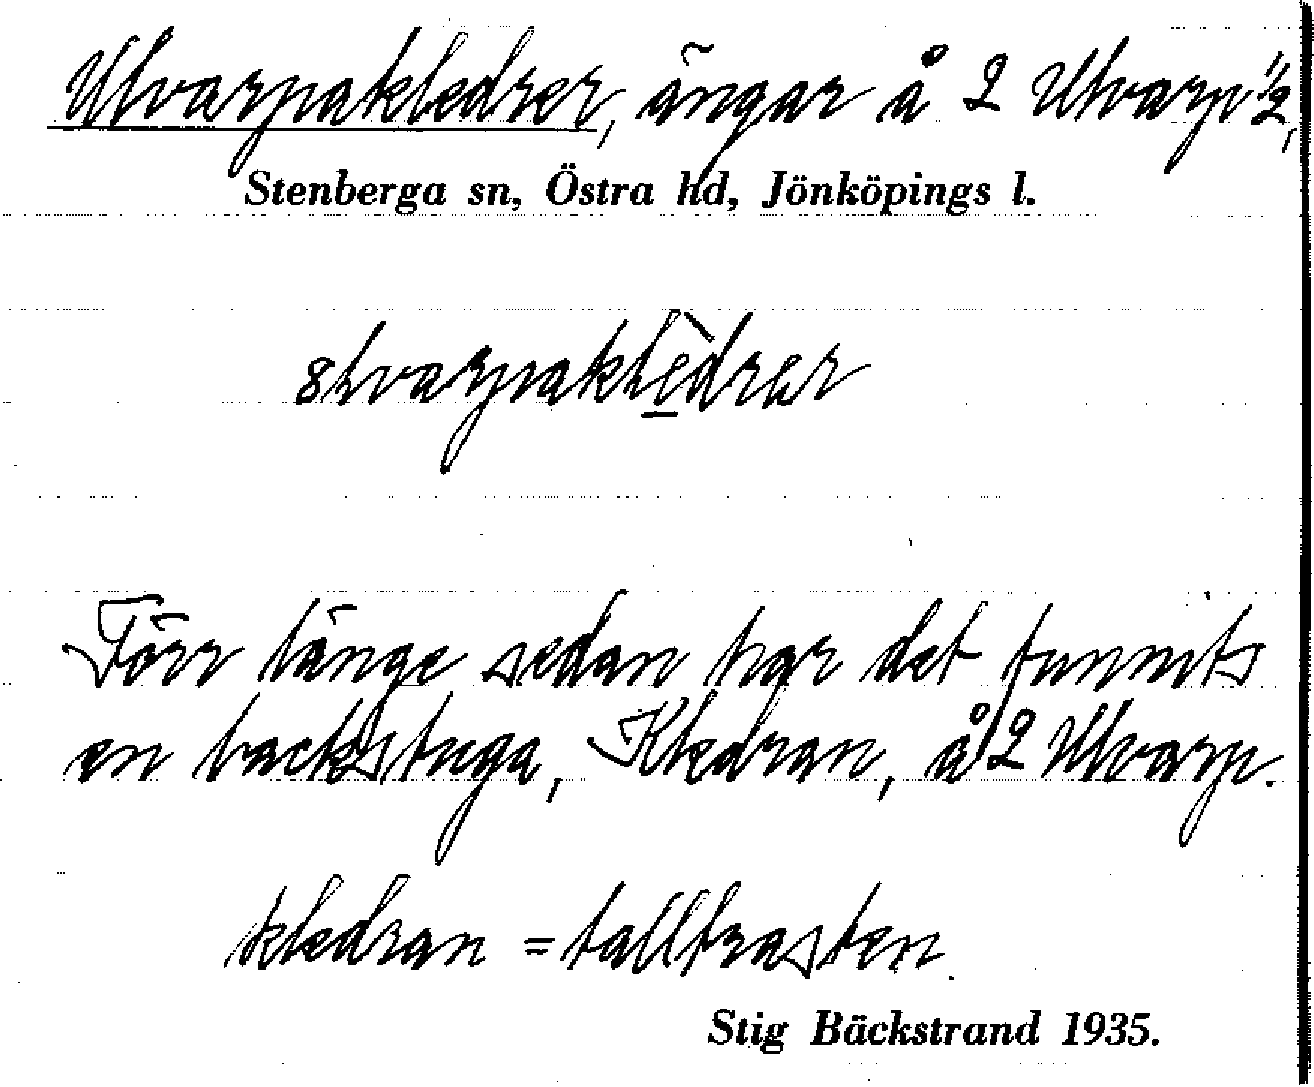 Ulvarpakledrer, ängar å 2 Ulvarp 1/2,
Stenberga sn, Östra hd, Jönköpings l.
8lvarpaklèdrer
Förr länge sedan har det funnits
en backstuga, Kledran, å 2 Ulvarp.
kledran =талltrasten.
Stig Bäckstrand 1935.